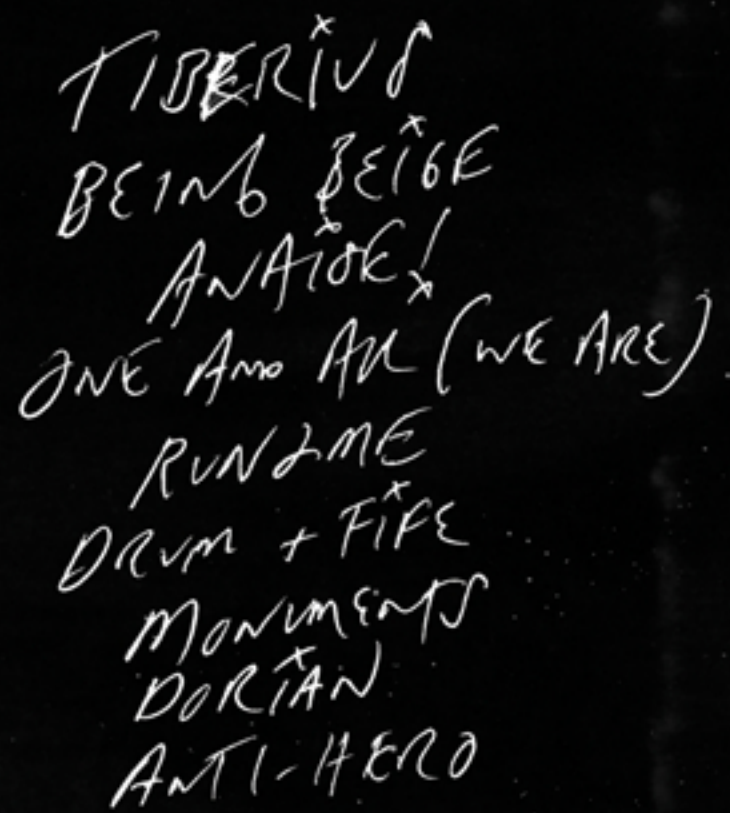 TIBERiUS
BEING BEiGE
ANAiSE!
ONE AND ALL (WE ARE)
RUN2ME
DRUM + FiFE
MONUMENTS
DORiAN
ANTI-HERO